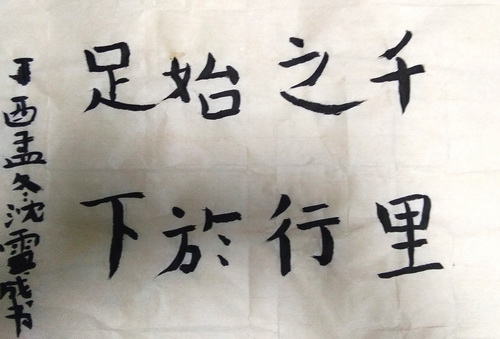 千里
之行
始於
足下
丁酉孟冬沈靈
书